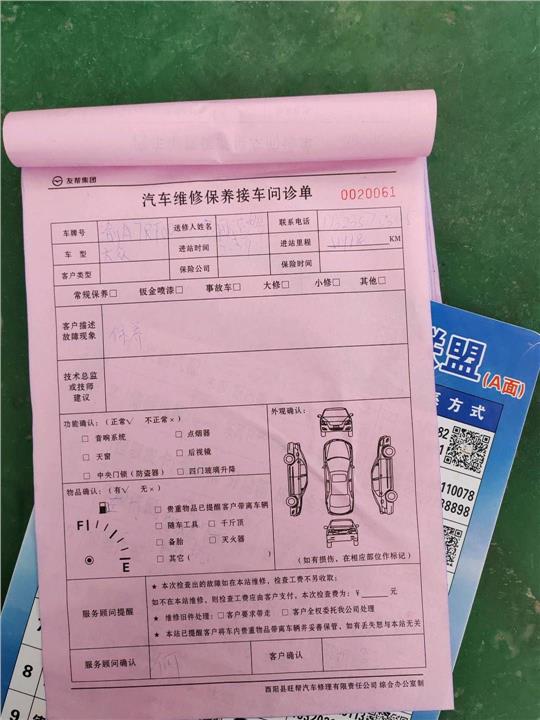 友帮集团
汽车维修保养接车问诊单 0020061
车牌号 送修人姓名 联系电话
车 型 大众 进站时间 进站里程 KM
客户类型 保险公司 保险时间
常规保养□ 钣金喷漆□ 事故车□ 大修□ 小修□ 其他□
客户描述
故障现象
保养
技术总监
或技师
建议
功能确认：（正常√ 不正常×）
□ 音响系统 □ 点烟器
□ 天窗 □ 后视镜
□ 中央门锁（防盗器） □ 四门玻璃升降
外观确认：
物品确认：（有√ 无×）
F
E
□ 贵重物品已提醒客户带离车辆
□ 随车工具 □ 千斤顶
□ 备胎 □ 灭火器
□ 其它（
（如有损伤，在相应部位作标记）
服务顾问提醒
★ 本次检查出的故障如在本站维修，检查工费不另收取；
如不在本站维修，则检查工费应由客户支付，本次检查费为：￥ 元
★ 维修旧件处理：□ 客户要求带走 □ 客户全权委托我公司处理
★ 本站已提醒客户将车内贵重物品带离车辆并妥善保管，如有丢失恕与本站无关
服务顾问确认 何 客户确认
酉阳县旺帮汽车修理有限责任公司 综合办公室制
联盟
(A面)
方式
82
1
110078
38898
8
9